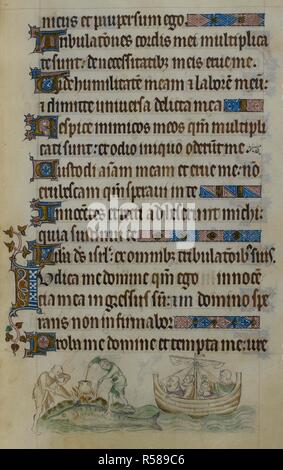 unicus et pauper sum ego.
Tribulationes cordis mei multiplica
te sunt: de necessitatib; meis erue me.
Vide humilitatē meam et laborem meū:
et dimitte universa delicta mea
Respice inimicos meos qm̄ multipli
cati sunt: et odio iniquo oderūt me
Custodi aīam meam et erue me: nō
erubescam qm̄ speraui in te
Innocētes et recti adheserūt michi:
quia sustinui te
deus isrl̄: ex omnibz tribulatōnibz suis.
Iudica me domine qm̄ ego innocē
tia mea ingressus sū: et in domino spe
rans non infirmabor
Proba me domine et tempta me: ure
alamy